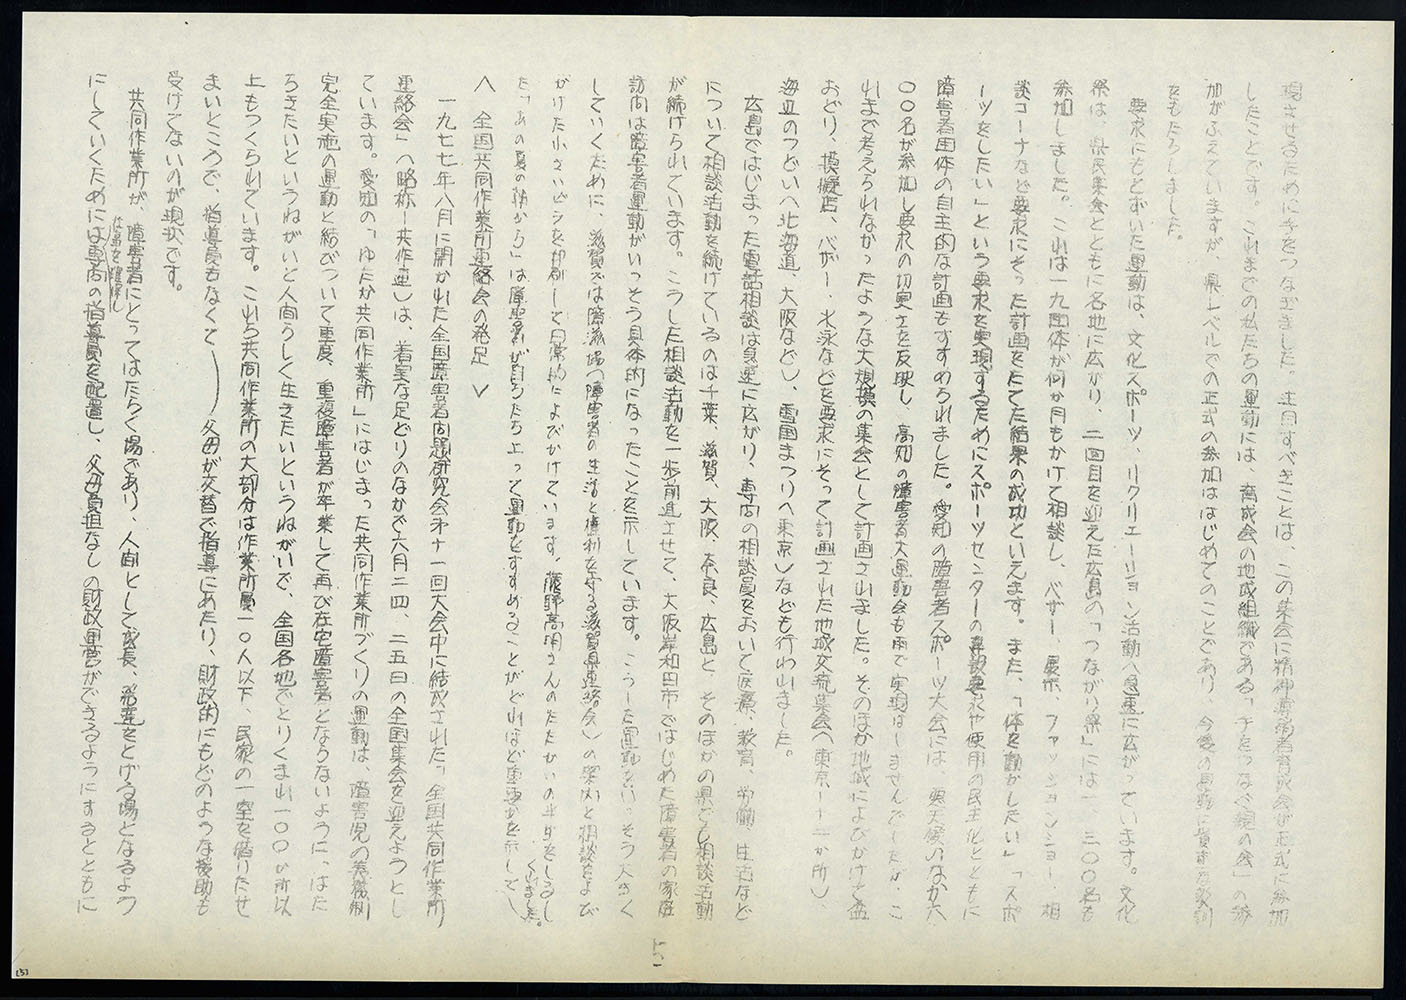 現させるために手をつなぎました。注目すべきことは、この集会に精神薄弱者育成会が正式に参加
したことです。これまでの私たちの運動には、育成会の地域組織である「手をつなぐ親の会」の参
加がふえていますが、県レベルでの正式の参加ははじめてのことであり、今後の運動に貴重な教訓
をもたらしました。
要求にもとずいた運動は、文化スポーツ、リクリエーション活動へ急速に広がっています。文化
祭は、県民集会とともに各地に広がり、二回目を迎えた広島の「つながり祭」には一、三〇〇名も
参加しました。これは一九団体が何か月もかけて相談し、バザー、展示、ファッションショー、相
談コーナなど要求にそった計画をたてた結果の成功といえます。また、「体を動かしたい」「スポ
ーツをしたい」という要求を実現するためにスポーツセンターの建設要求や使用の民主化とともに
障害者団体の自主的な計画もすすめられました。愛知の障害者スポーツ大会には、悪天候のなか六
〇〇名が参加し要求の切実さを反映し、高知の障害者大運動会も雨で実現はしませんでしたが、こ
れまで考えられなかったような大規模の集会として計画されました。そのほか地域によびかけて盆
おどり、模擬店、バザー、水泳などを要求にそって計画された地域交流集会(東京ー十二か所)、
海辺のつどい(北海道、大阪など)、雪国まつり(東京)なども行われました。
広島ではじまった電話相談は急速に広がり、専門の相談員をおいて医療、教育、労働、生活など
について相談活動を続けているのは千葉、滋賀、大阪、奈良、広島と、そのほかの県でも相談活動
が続けられています。こうした相談活動を一歩前進させて、大阪岸和田市ではじめた障害者の家庭
訪問は障害者運動がいっそう具体的になったことを示しています。こうした運動をいっそう大きく
していくために、滋賀では障滋協(障害者の生活と権利を守る滋賀県連絡会)の案内と相談をよび
かけた小さいビラを印刷して日常的によびかけています。藤野高明さんのたたかいの半生をしるし
た「あの夏の朝から」は障害者が自らたち上って運動をすすめることがどれほど重要かを示して
くれました。
〈 全国共同作業所連絡会の発足 〉
一九七七年八月に開かれた全国障害者問題研究会第十一回大会中に結成された「全国共同作業所
連絡会」(略称ー共作連)は、着実な足どりのなかで六月二四、二五日の全国集会を迎えようとし
ています。愛知の「ゆたか共同作業所」にはじまった共同作業所づくりの運動は、障害児の義務制
完全実施の運動と結びついて重度、重複障害者が卒業して再び在宅障害者とならないように、はた
らきたいというねがいと人間らしく生きたいというねがいで、全国各地でとりくまれ一〇〇か所以
上もつくられています。これら共同作業所の大部分は作業所員一〇人以下、民家の一室を借りたせ
まいところで、指導員もなくて――父母が交替で指導にあたり、財政的にもどのような援助も
受けてないのが現状です。
共同作業所が、障害者にとってはたらく場であり、人間として成長、発達をとげる場となるよう
仕事を確保し
にしていくためには専門の指導員を配置し、父母負担なしの財政運営ができるようにするとともに
5
(5)